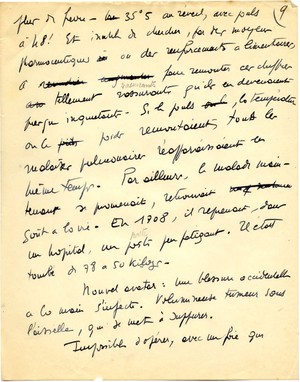 9
plus de fièvre – 35°5 au réveil, avec pouls
à 48! Et inutile de chercher, par des moyens
pharmaceutiques ou des renforcements alimentaires,
à pour remonter ces chiffres
tellement rassurants qu'ils en devenaient
presqu'inquiétants. Si le pouls, la température
ou le poids remontaient, tous les
malaises pulmonaires réapparaissaient en
même temps. Par ailleurs, le malade main-
tenant se promenait, retrouvait
goût à la vie. En 1908, il reprenait, dans
un hôpital, un poste peu fatigant. Il était
tombé de 78 à 50 kilogs.
Nouvel avatar : une blessure accidentelle
à la main s'infecte. Volumineuse tumeur sous
l'aisselle, qui se met à suppurer.
Impossible d'opérer, avec un foie qui